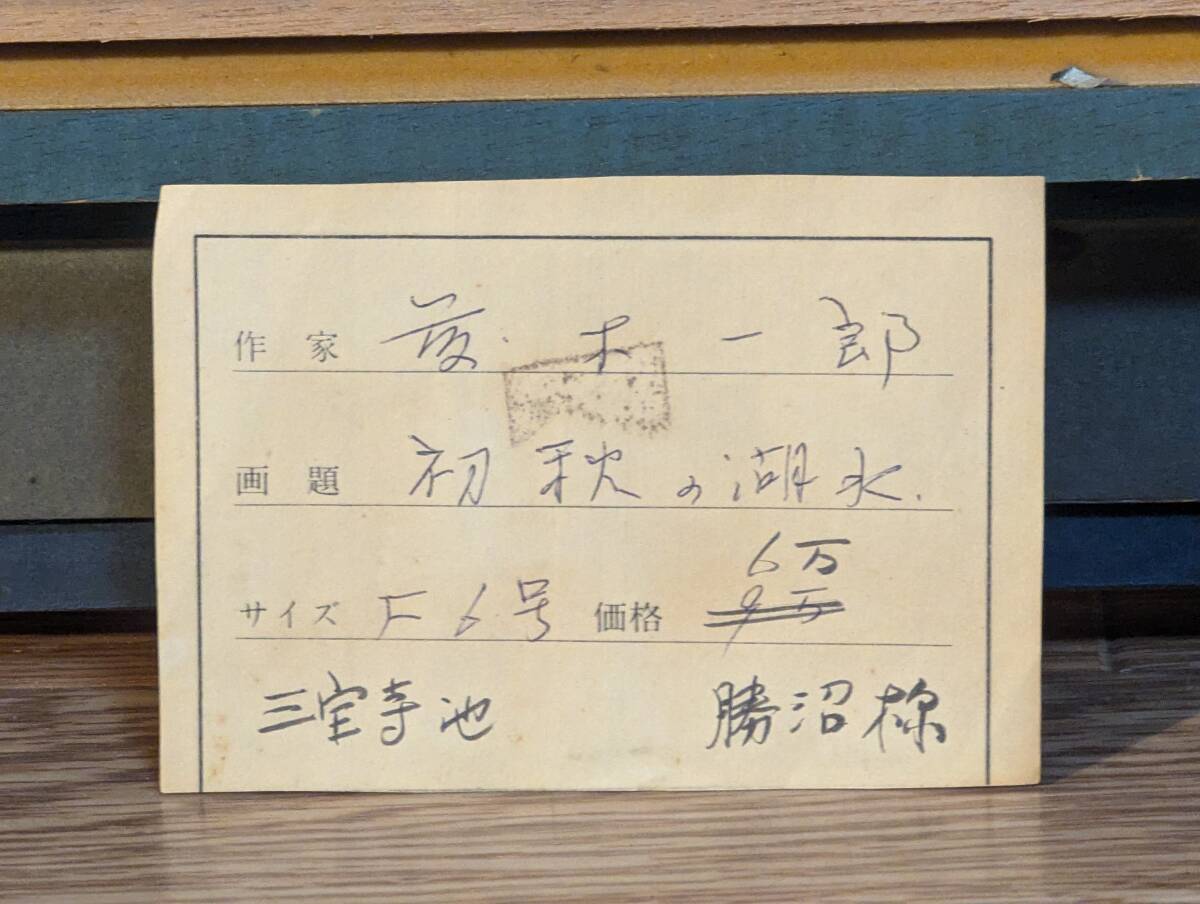 作家 木 一 郎
画題 初秋の湖水.
6万
サイズ F6号 価格 9万
三宝寺池 勝沼様